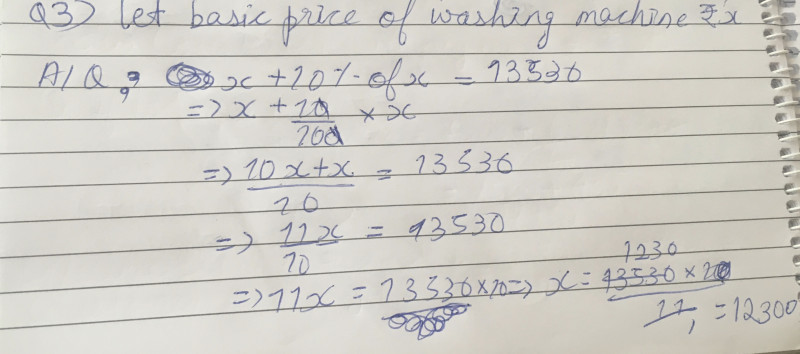 Q3) Let basic price of washing machine ₹ x
A/Q, x + 10% of x = 13530
=> x + 10/100 × x
=> 10x+x/10 = 13530
=> 11x/10 = 13530
=> 11x = 13530 × 10 => x = 13530 × 10/11, = 12300
1230